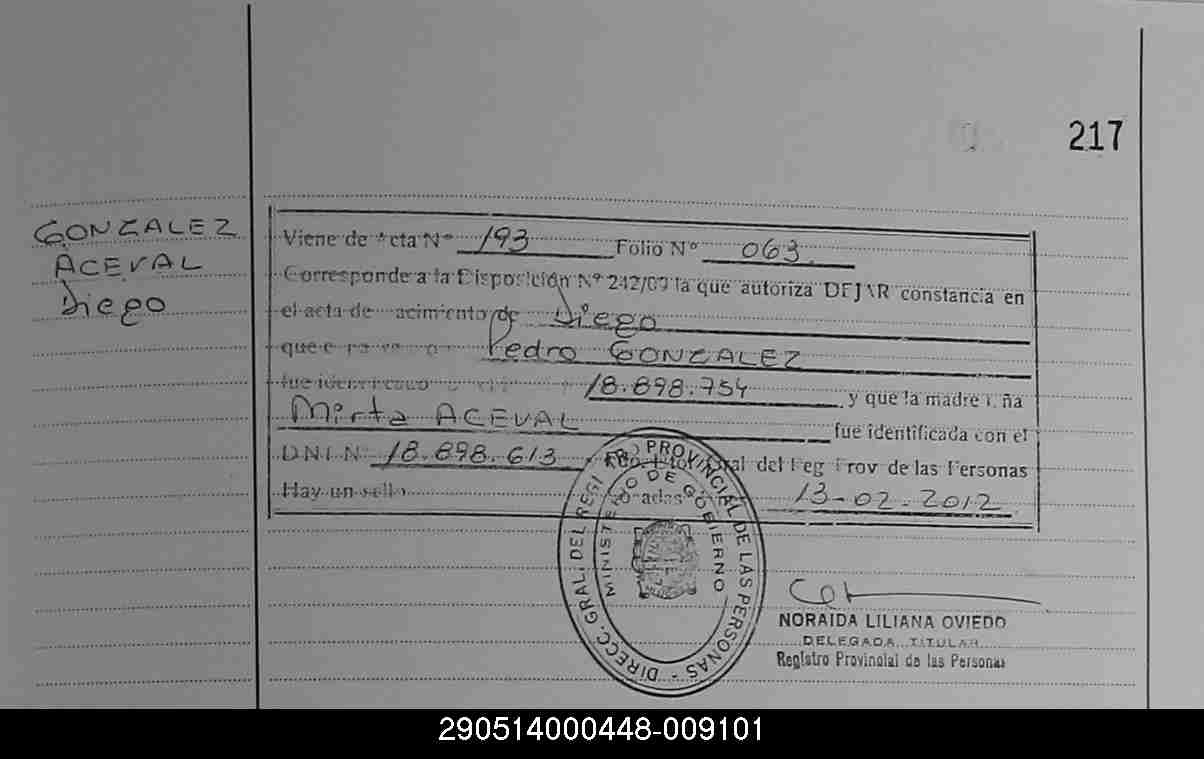 217
GONZALEZ
ACEVAL
Diego
Viene de Acta Nº 193 Folio Nº 063.
Corresponde a la Disposición Nº 242/09 la que autoriza DEJAR constancia en
el acta de nacimiento de Diego
que Pedro GONZALEZ
fue 18.898.754 y que la madre
Mirta ACEVAL fue identificada con el
DNI N 18.898.613 del Reg Prov de las Personas
Hay un sello 13-02-2012
DIRECC. GRAL. DEL REG PROVINCIAL DE LAS PERSONAS -
MINISTERIO DE GOBIERNO
NORAIDA LILIANA OVIEDO
DELEGADA TITULAR
Registro Provincial de las Personas
290514000448-009101